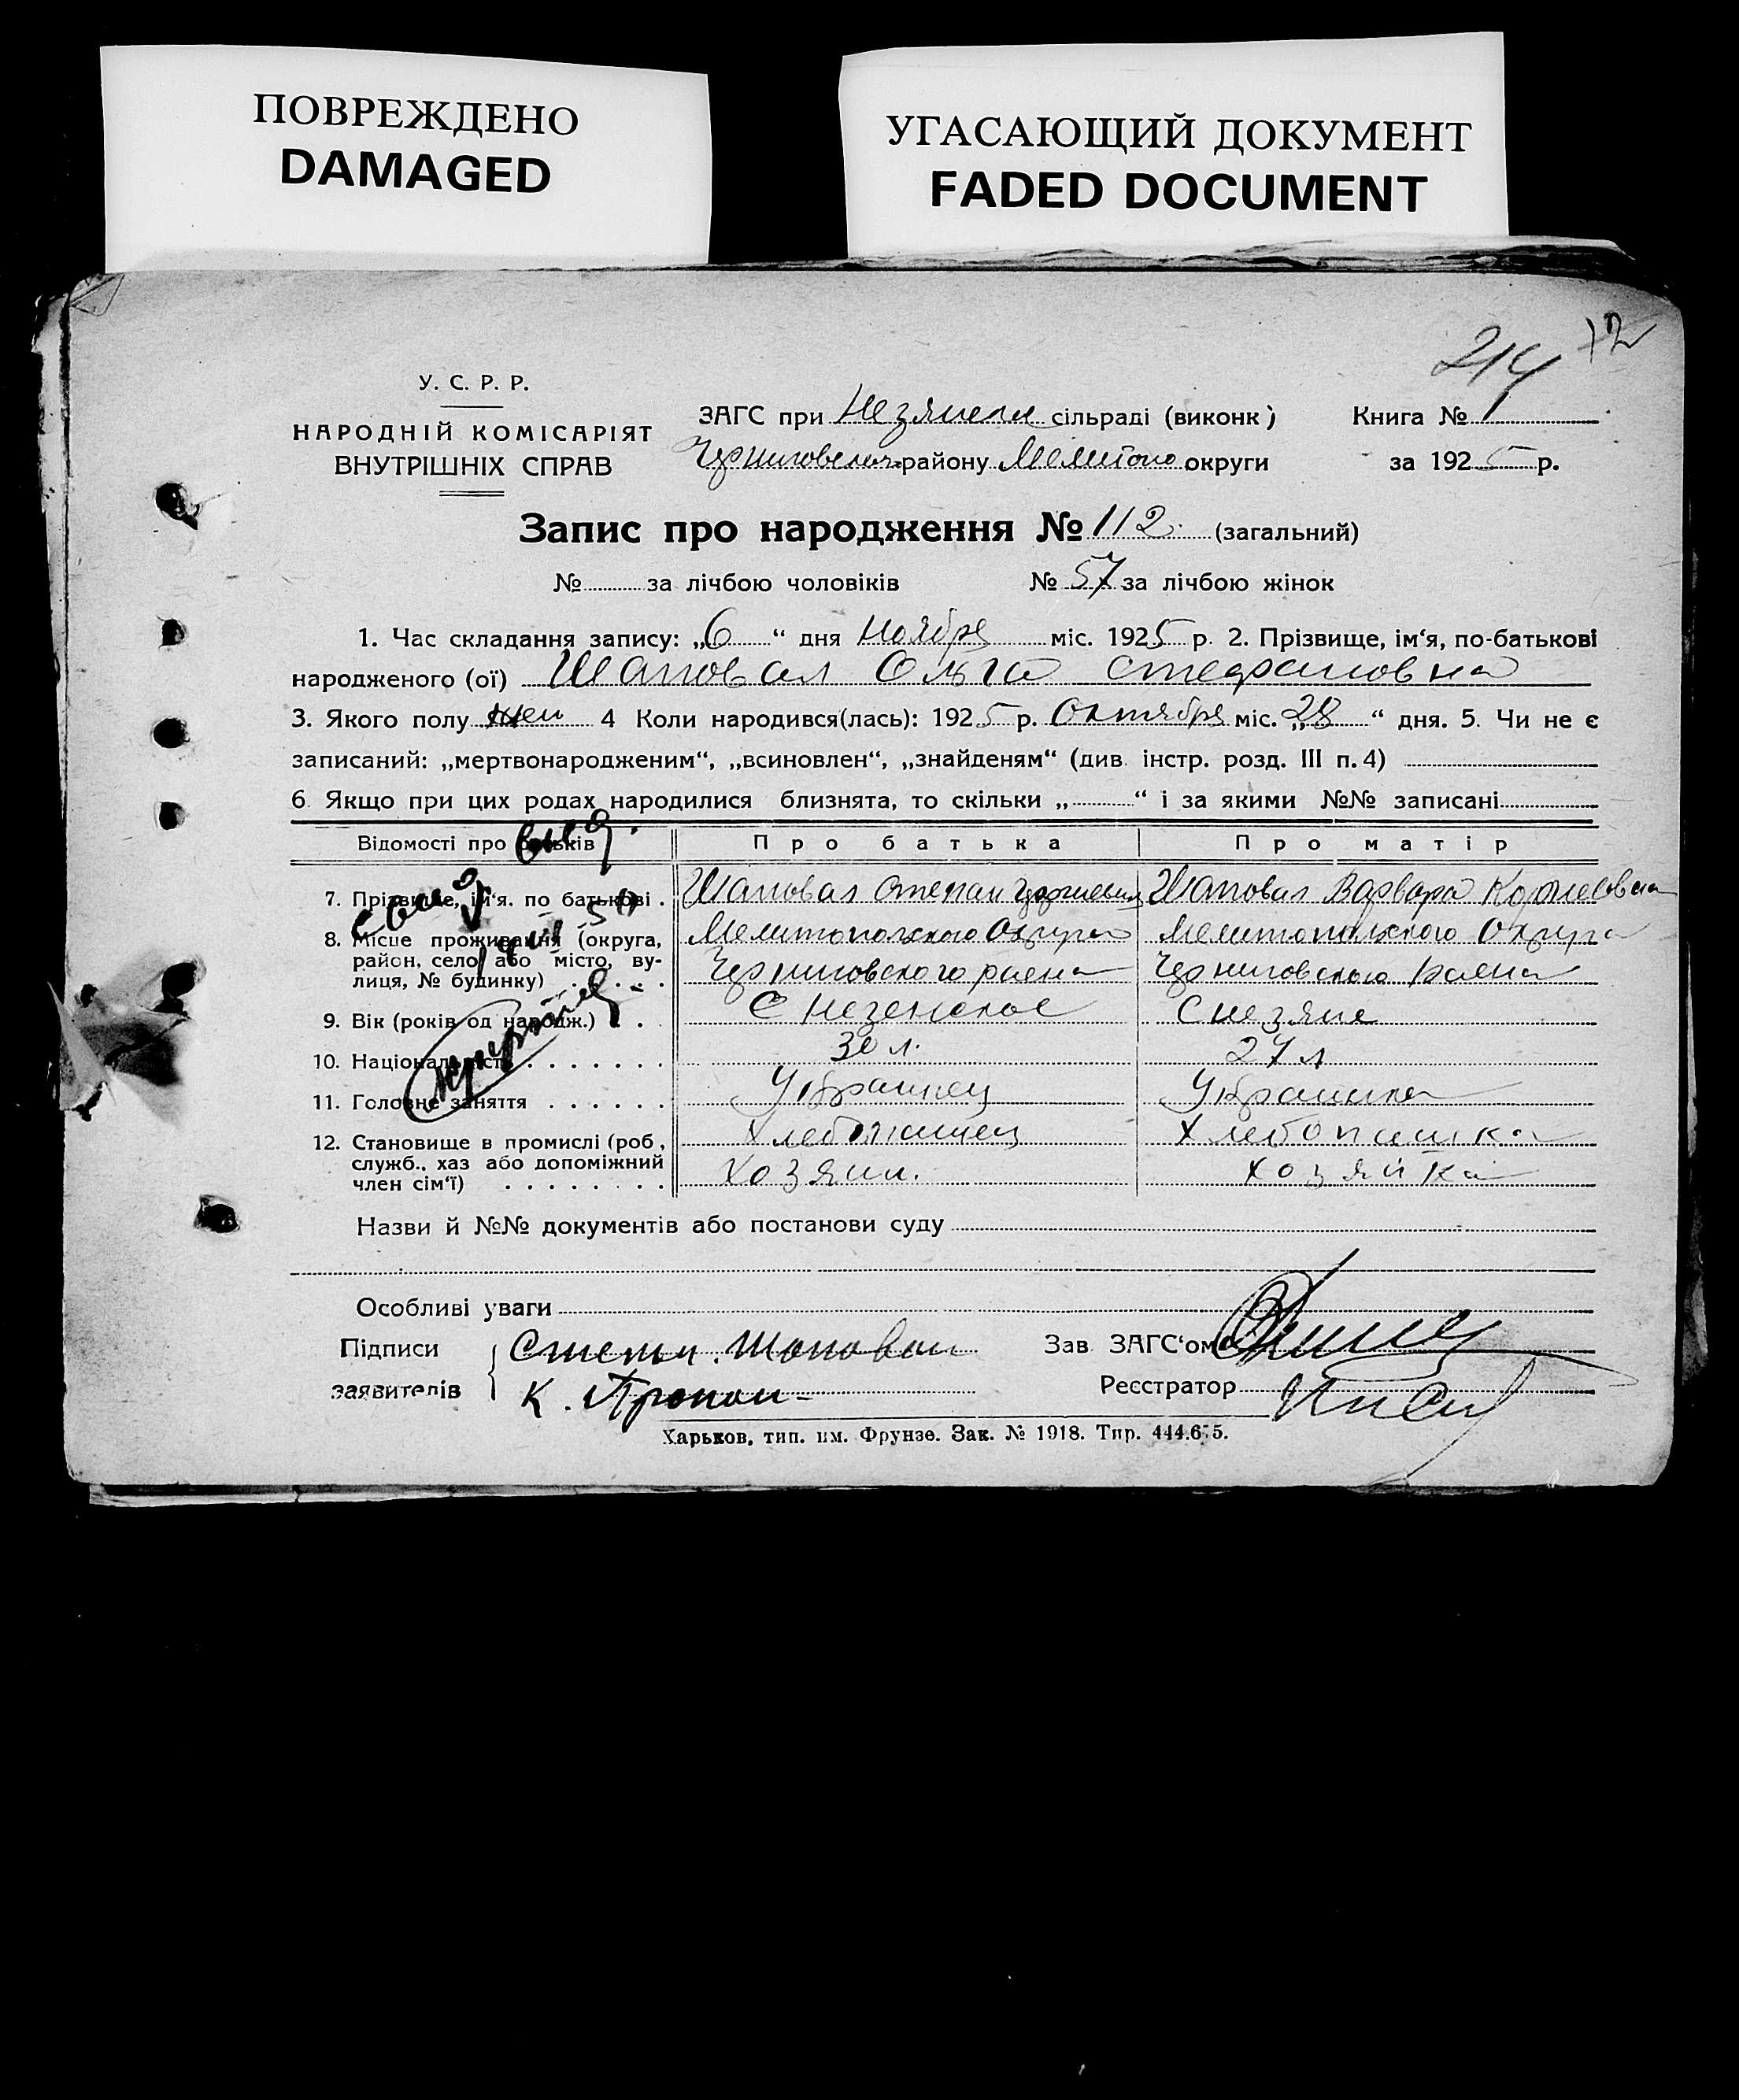 ПОВРЕЖДЕНО
DAMAGED
УГАСАЮЩИЙ ДОКУМЕНТ
FADED DOCUMENT
214 12
У. С. Р. Р.
НАРОДНІЙ КОМІСАРІЯТ
ВНУТРІШНІХ СПРАВ
ЗАГС при сільраді (виконк) Книга № 1
району округи за 1925 р.
Запис про народження № 112. (загальний)
№ за лічбою чоловіків № 57 за лічбою жінок
1. Час складання запису: „6“ дня Ноября міс. 1925 р. 2. Прізвище, ім‘я, по-батькові
народженого (ої) Шаповал Ольга Стефановна
3. Якого полу жен 4 Коли народився(лась): 1925 р. Октября міс. „28“ дня. 5. Чи не є
записаний: „мертвонародженим“, „всиновлен“, „знайденям“ (див. інстр. розд. III п. 4)
6. Якщо при цих родах народилися близнята, то скільки „ “ і за якими №№ записані
Відомості про батьків Про батька Про матір
7. Прізвище, ім‘я. по батькові . Шаповал Степан Шаповал Варвара Корнеевна
8. Місце проживання (округа, Мелитопольского Округа Мелитопольского Округа
район, село або місто, ву- Черниговского раена Черниговского Раена
лиця, № будинку) . . . . . .
9. Вік (років од народж.) . . . С С
10. Національність . . . . . . . 30 л. 27 л
11. Головне заняття . . . . . . Украинец Украинка
12. Становище в промислі (роб., Хлебопашец Хлебопашка
служб., хаз або допоміжний Хозяин. хозяйка
член сім‘ї) . . . . . . . .
Назви й №№ документів або постанови суду
Особливі уваги
Підписи Степан. Шаповал Зав ЗАГС‘ом
заявителів К. Реєстратор
Харьков, тип. им. Фрунзе. Зак. № 1918. Тир.